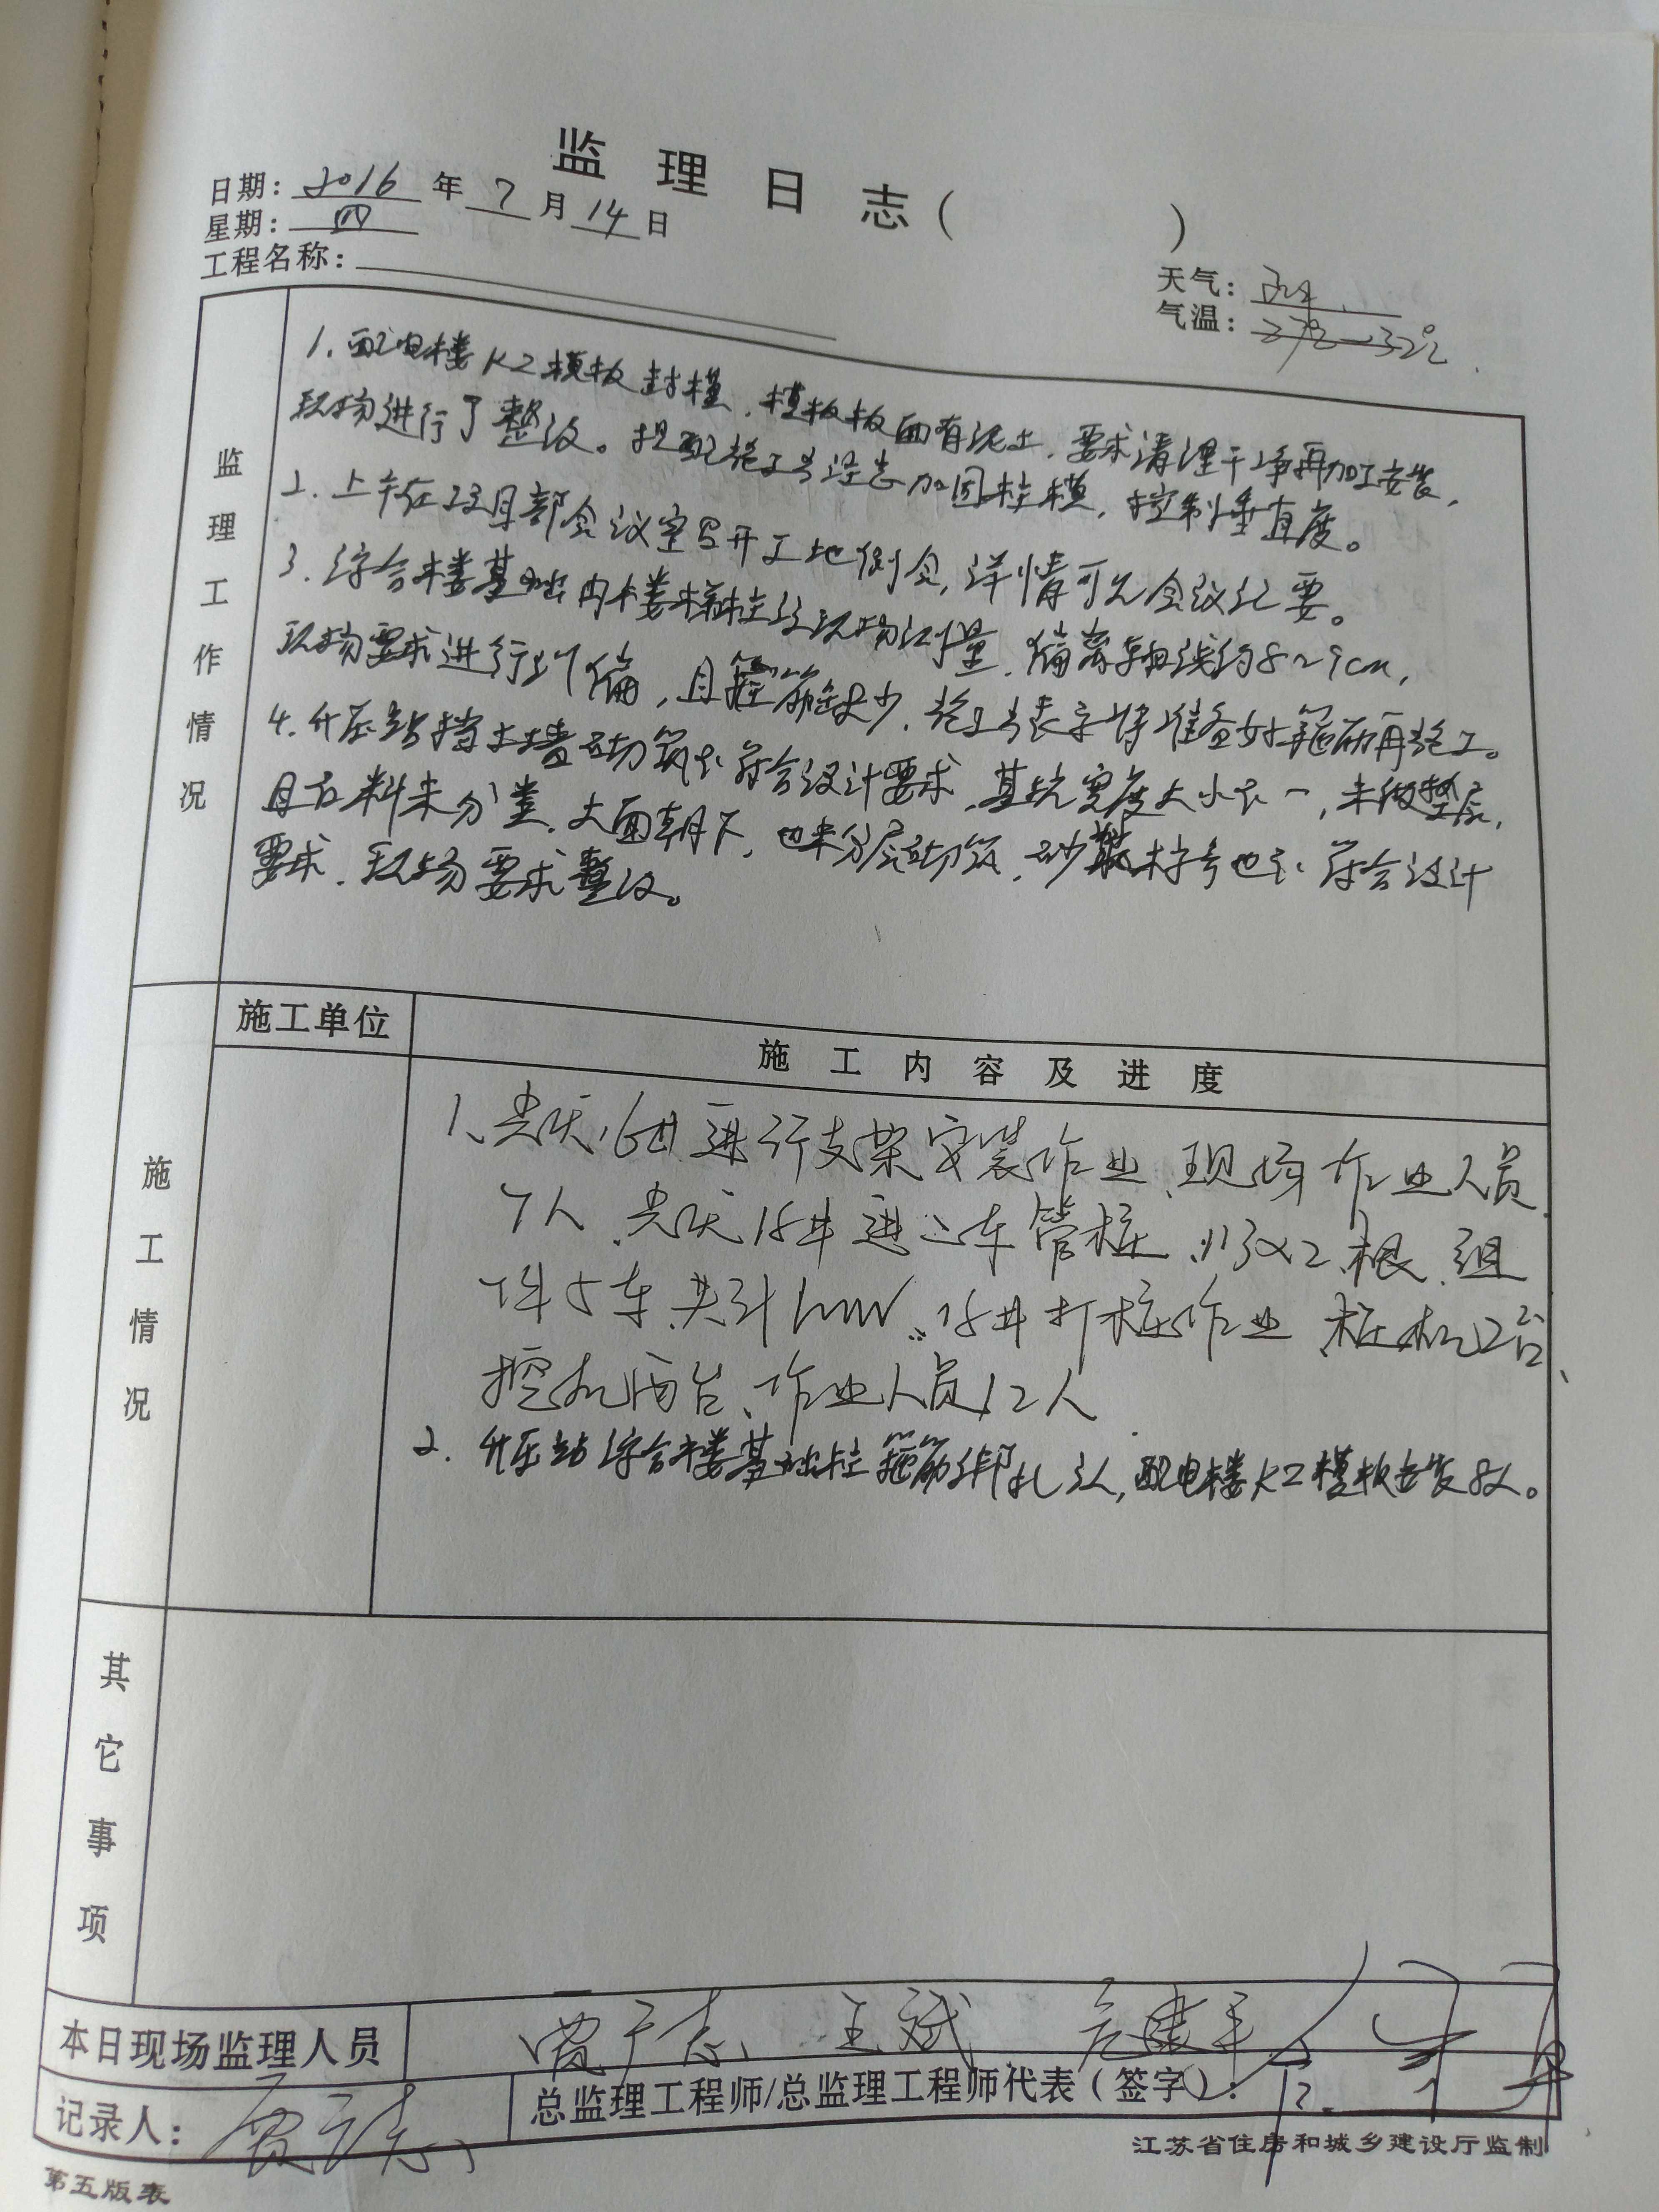 监理日志（ ）
日期：2016年7月14日
星期：四
工程名称：
天气：
气温：27℃—32℃
监理工作情况
1.配电楼KZ模板封模，模板板面有泥土，要求清理干净再加工安装，
现场进行了整改。提醒施工单位注意加固柱模，控制垂直度。
2.上午在项目部会议室召开工地例会，详情可见会议纪要。
3.综合楼基础内楼梯柱经现场测量，偏离轴线约8~9cm，
现场要求进行纠偏，且箍筋缺少，施工单位表示将准备好箍筋再施工。
4.升压站挡土墙砌筑不符合设计要求，基坑宽度大小不一，未做垫层，
且石料未分类，大面朝下，也未分层砌筑，砂浆标号也不符合设计
要求，现场要求整改。
施工情况
施工单位
施工内容及进度
1、 进行支架安装作业、现场作业人员
7人、 进 车管桩、 根、组
件5车、共计1MW、 打桩作业 桩机2台、
挖机两台、作业人员12人
2.升压站综合楼基础柱箍筋绑扎 人，配电楼KZ模板安装8人。
其它事项
本日现场监理人员 王斌
记录人：
总监理工程师/总监理工程师代表（签字）：
江苏省住房和城乡建设厅监制
第五版表